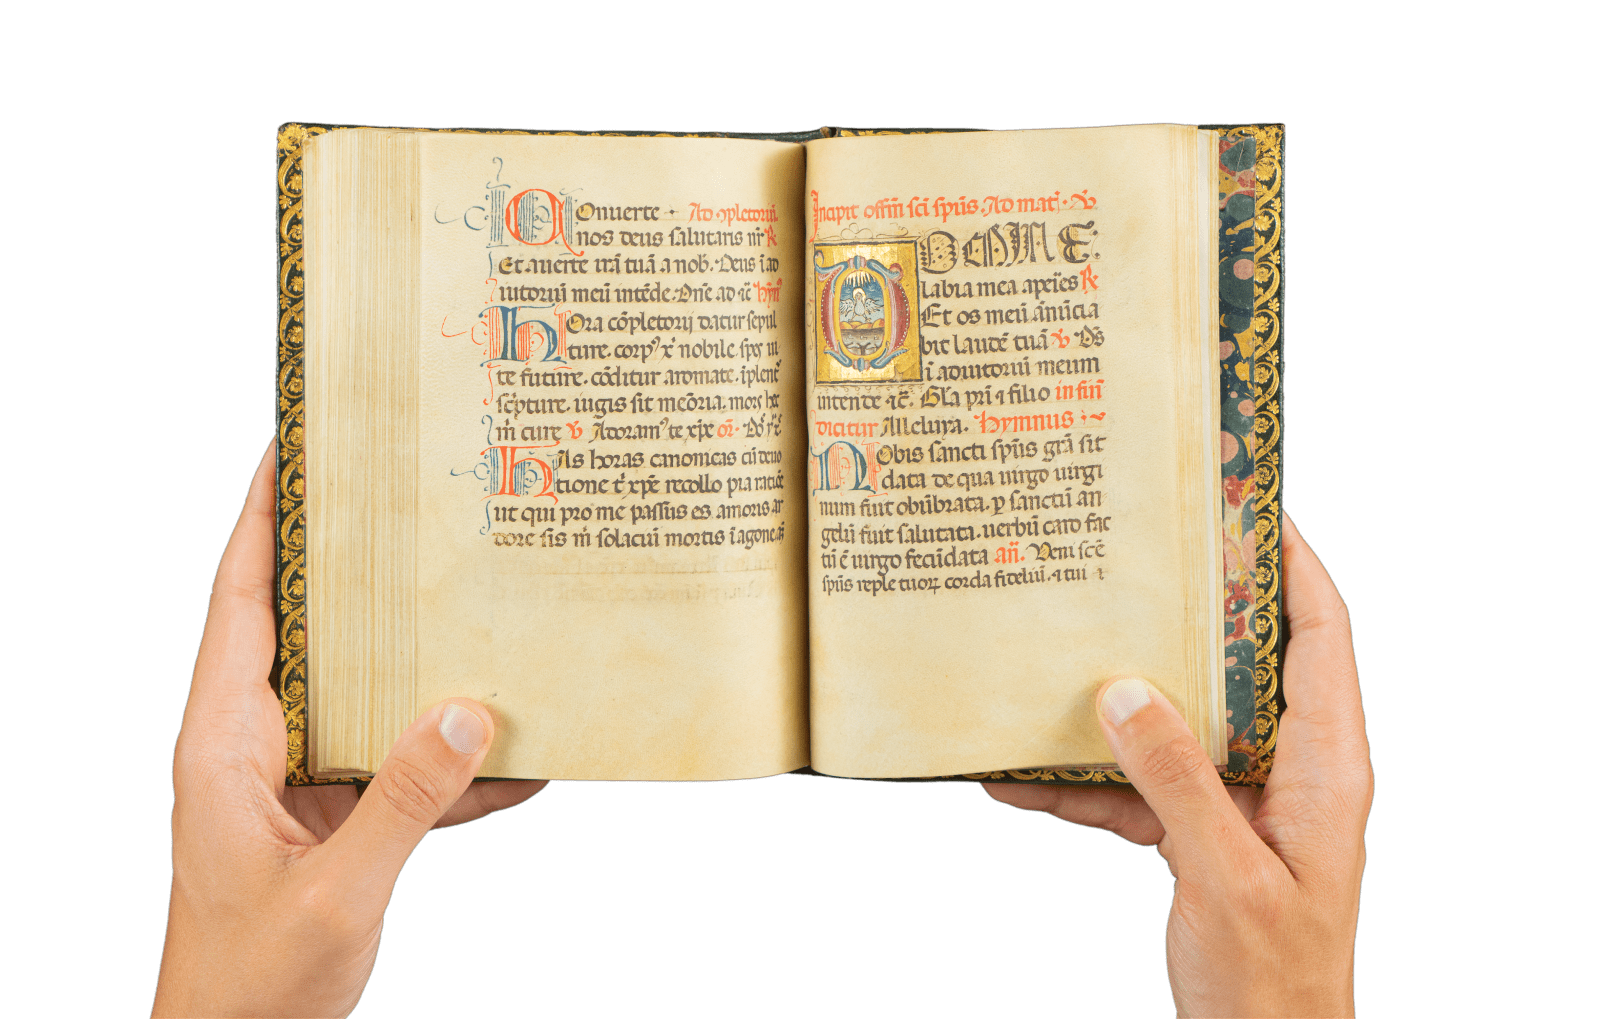 Conuerte · Ad ꝯpletoriū.
nos deus salutaris nr̄ ℟
Et auerte irā tuā a nob. Deus ī ad
iutoriū meū intēde. Dn̄e ad īc̄ hȳn⁹
Hora cōpletorij datur sepul
ture. corp⁹ xp̄i nobile. spes ui
te future. cōditur aromate. īplent᷑
scpture. iugis sit meōria. mors hec
m̄ cure ℣ Adoram⁹ te xp̄e or̄.
His horas canonicas cū deuo
tione t̄ xp̄e recollo pia ratiōe
ut qui pro me passus es amoris ar
dore sis m̄ solaciū mortis ī agone.
Incipit offm̄ sc̄i sp̄us. Ad mat̄. ℣.
DOMINE:
labia mea apeīes ℟
Et os meū ānūcia
bit laudē tuā ℣ Ds̄
ī adiutoriū meum
intende ⁊c̄. Gl̄a pr̄i ⁊ filio in fin̄
dicitur Alleluya. Hymnus
Nobis sancti sp̄us grā sit
data de qua uirgo uirgi
num fuit obūbrata. ꝑ sanctū an
gelū fuit salutata. uerbū caro fac
tū ē uirgo fecūdata an̄. Veni sc̄e
sp̄us reple tuoꝝ corda fideliū. ⁊ tui